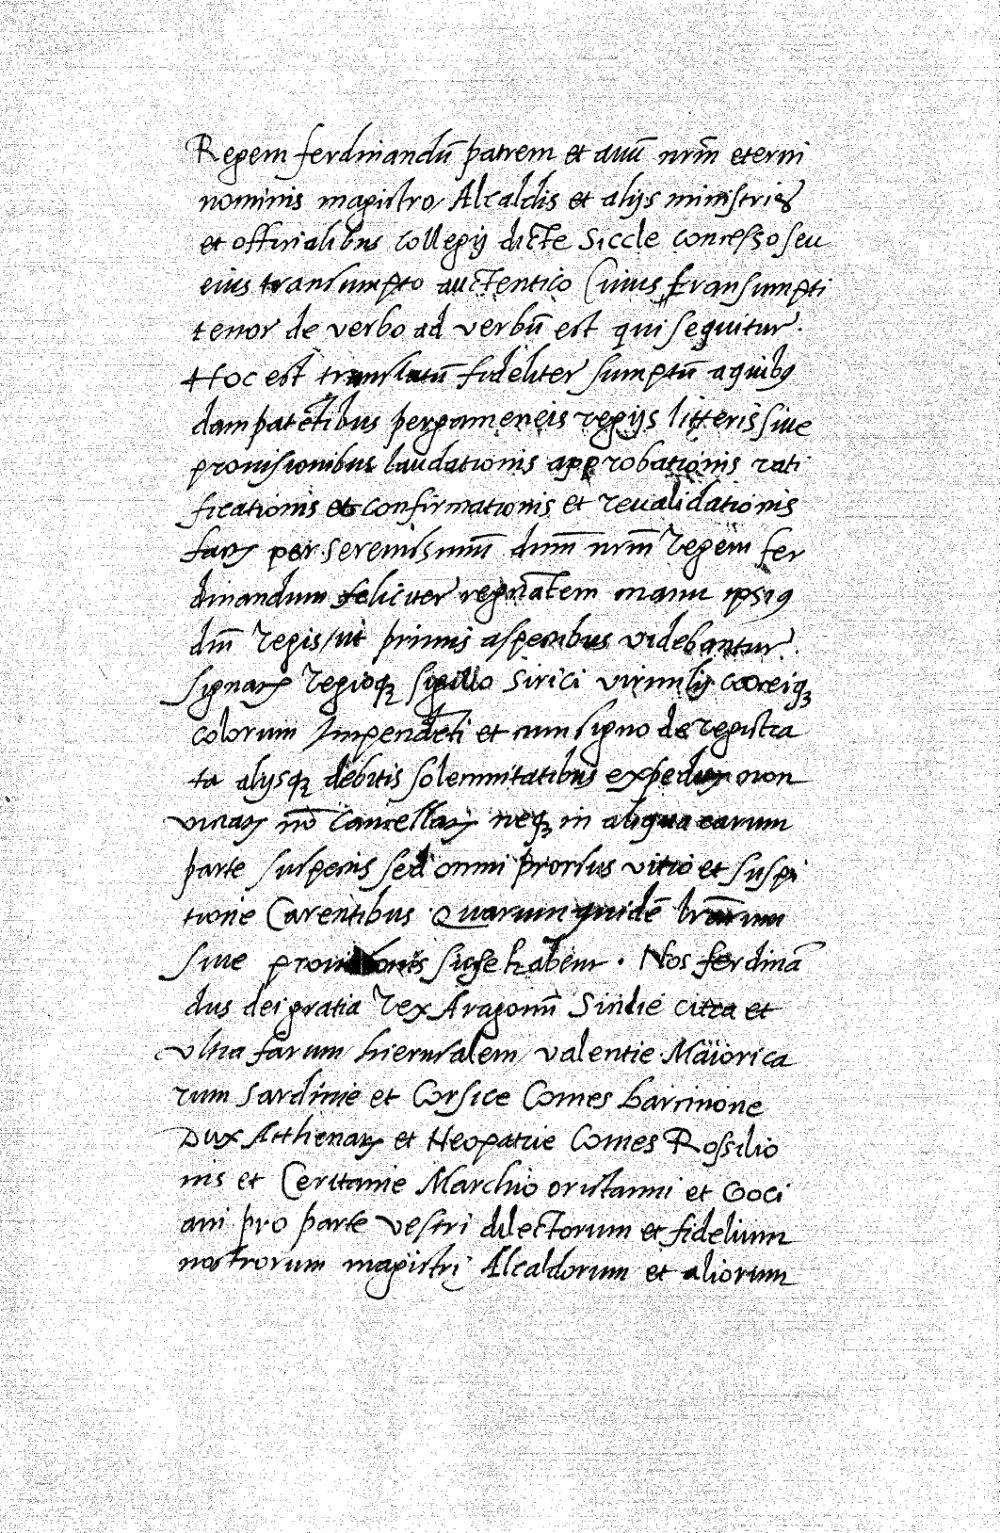 Regem ferdinandū patrem et auū nrm̄ eterni
nominis magistro Alcaldis et alijs ministris
et officialibus collegij dicte Siccle concesso seu
eius transumpto auctentico Cuius transumpti
tenor de verbo ad verbū est qui sequitur.
Hoc est translatū fideliter sumptū a quibus
dam patētibus pergameneis regijs litteris siue
prouisionibus laudationis approbationis rati
ficationis et confirmationis et reualidationis
per serenissimū dnm̄ nrm̄ Regem fer
dinandum feliciter regnātem manu ipsius
dnī Regis/ut primis aspectibus videbantur.
Regioq3 sigillo Sirici virmilij croceiq3
colorum Impendēti et cum signo de registra
ta alijsq3 debitis solemnitatibus non
nō neq3 in aliqua earum
parte suspectis sed omni prorsus vitio et suspi
tione Carentibus Quarum quidē
Siue Nos ferdinā
dus dei gratia Rex Aragonū Sicilie citra et
vltra farum hierusalem valentie Maiorica
rum Sardinie et Corsice Comes barcinone
Dux et Neopatrie Comes Rossilio
nis et Ceritanie Marchio oristanni et Goci
ani pro parte vestri dilectorum et fidelium
nostrorum magistri Alcaldorum et aliorum